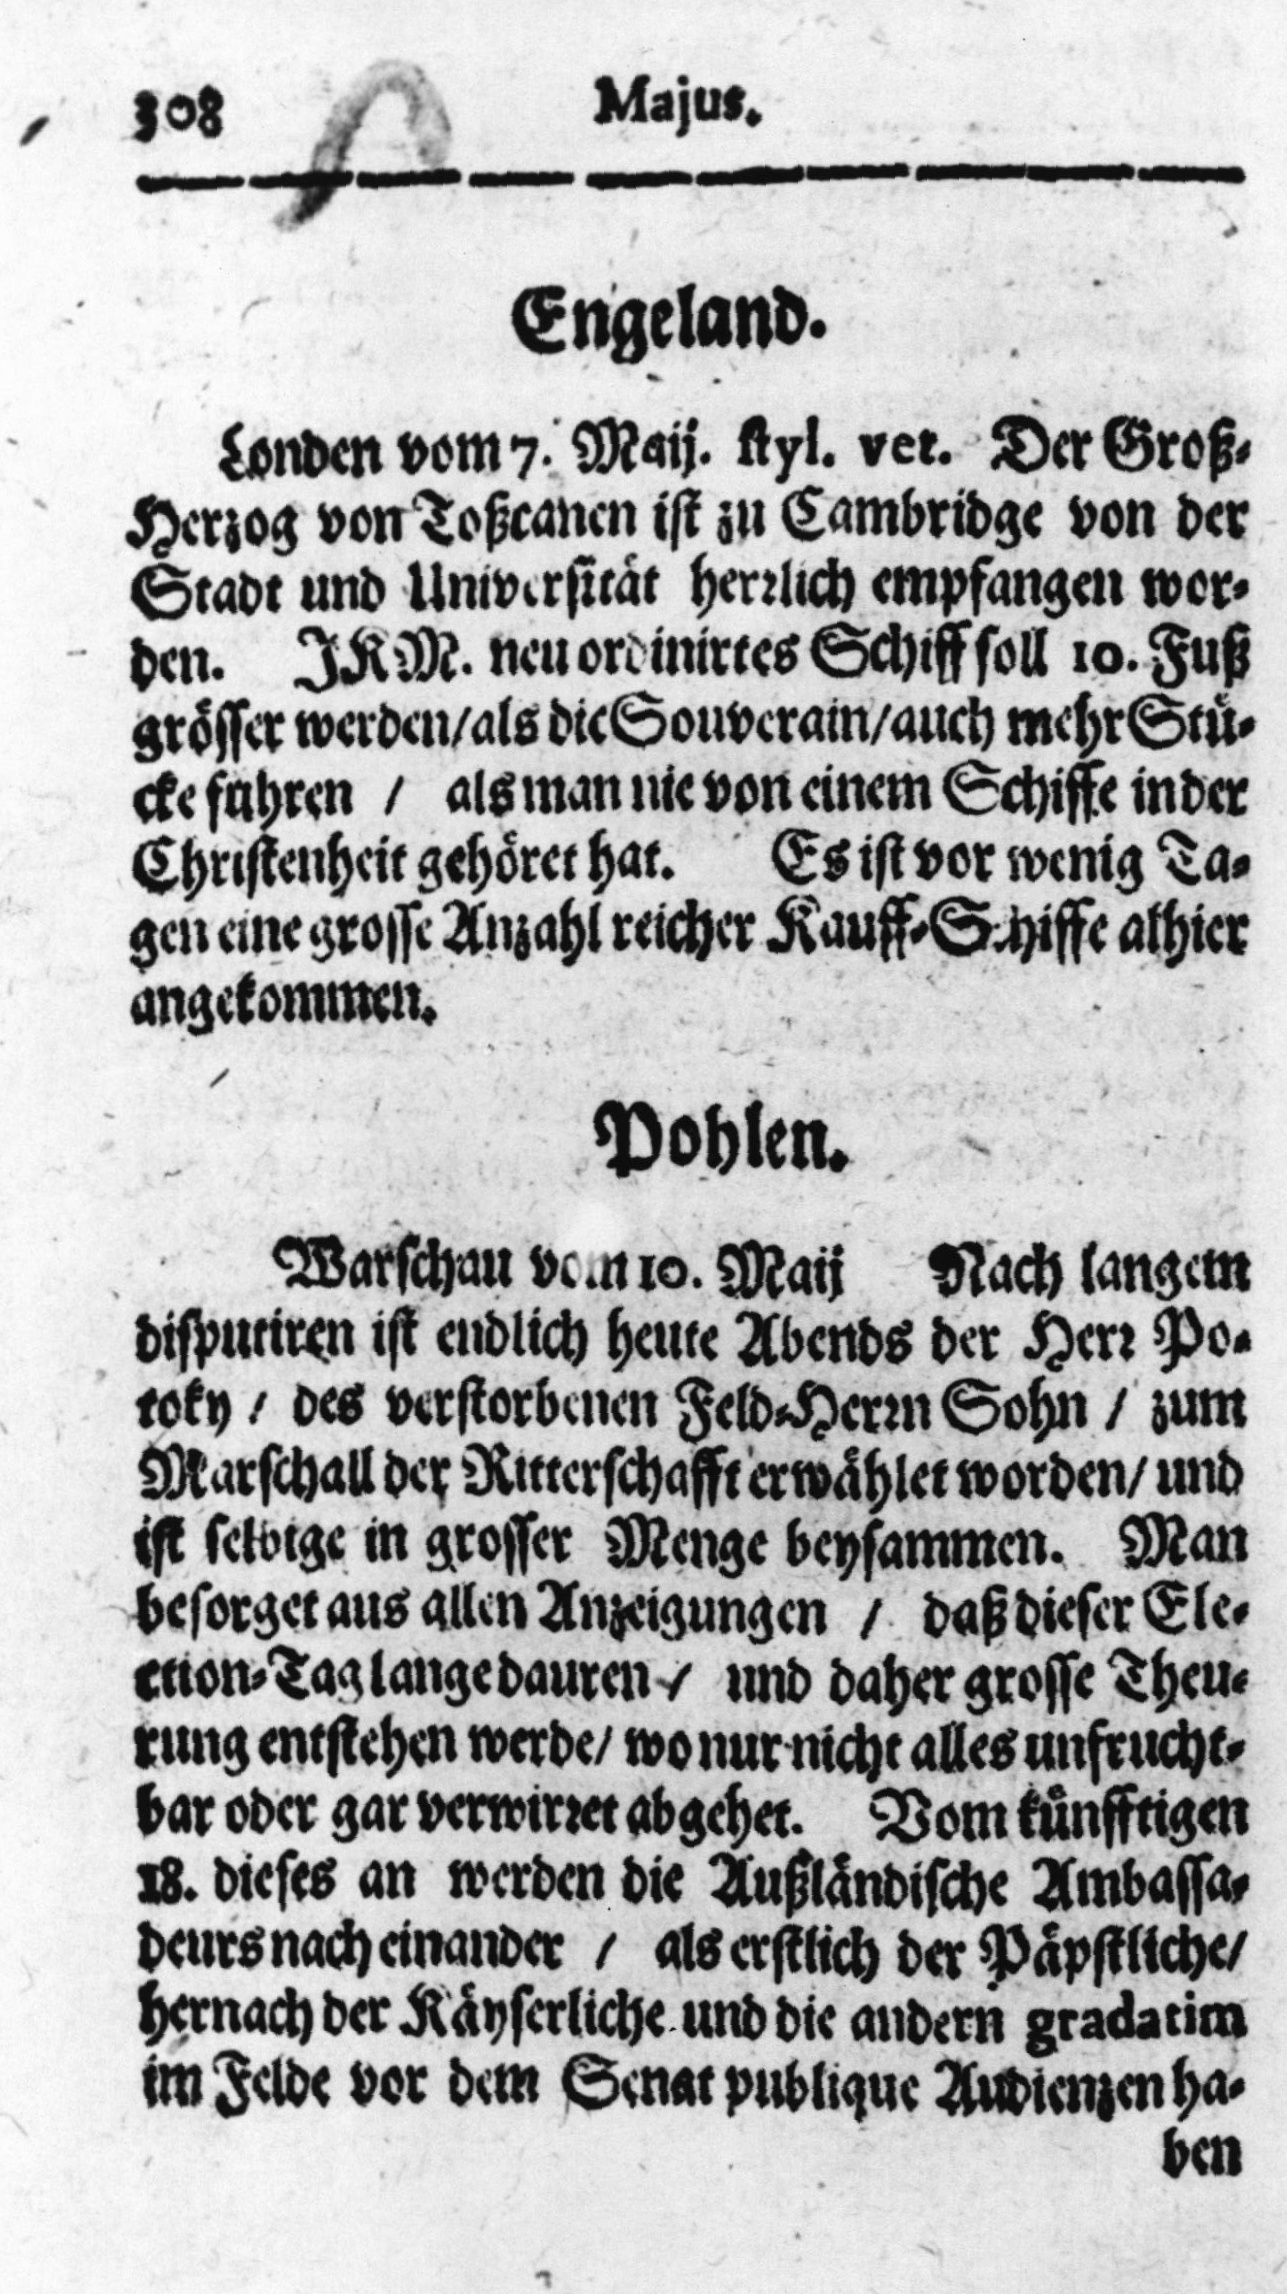 308 Majus.
Engeland.
Londen vom 7. Maij. styl. vet. Der Groß-
Herzog von Toßcanen ist zu Cambridge von der
Stadt und Universität herrlich empfangen wor-
den. JKM. neu ordinirtes Schiff soll 10. Fuß
grösser werden/ als die Souverain/ auch mehr Stü-
cke führen / als man nie von einem Schiffe in der
Christenheit gehöret hat. Es ist vor wenig Ta-
gen eine grosse Anzahl reicher Kauff-Schiffe alhier
angekommen.
Pohlen.
Warschau vom 10. Maij Nach langem
disputiren ist endlich heute Abends der Herr Po-
toky / des verstorbenen Feld-Herrn Sohn / zum
Marschall der Ritterschafft erwählet worden/ und
ist selbige in grosser Menge beysammen. Man
besorget aus allen Anzeigungen / daß dieser Ele-
ction-Tag lange dauren / und daher grosse Theu-
rung entstehen werde/ wo nur nicht alles unfrucht-
bar oder gar verwirret abgehet. Vom künfftigen
18. dieses an werden die Außländische Ambassa-
deurs nach einander / als erstlich der Päpstliche/
hernach der Käyserliche und die andern gradatim
im Felde vor dem Senat publique Audienzen ha-
ben